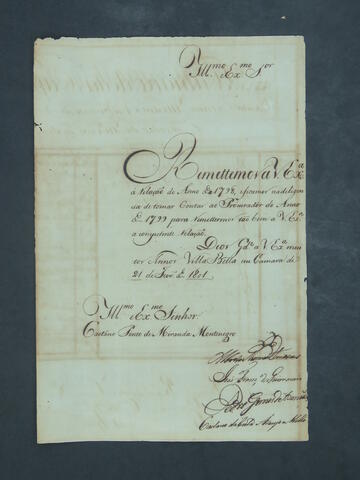 Illmo Exmo Snor
Remettemos a V. Exa
a relação do Anno de 1798, e ficamos na diligen
cia de tomar Contas ao Procurador do Anno
de 1799 para remettermos tão bem a V. Exa
a competente relação.
Deos Gde a V. Exa mui
tos Annos Villa Bella em Camara de
21 de Fevro de 1801
Illmo Exmo Senhor
Caetano Pinto de Miranda Montenegro